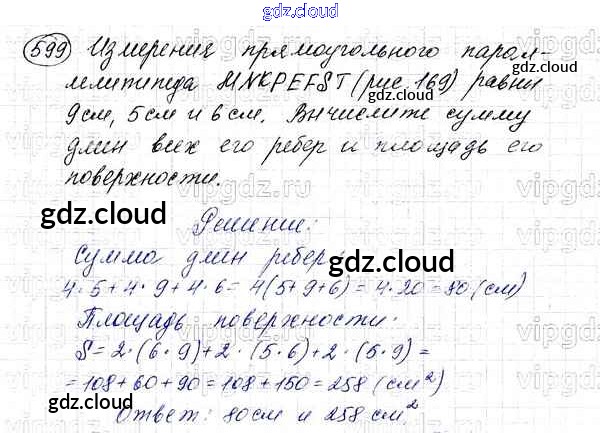 gdz.cloud
599 Измерения прямоугольного парал-
лелипипеда MNKPEFST (рис. 169) равны
9см, 5см и 6см. Вычислите сумму
длин всех его ребер и площадь его
поверхности.
Решение:
Сумма длин ребер
4·5+4·9+4·6=4(5+9+6)=4·20=80(см)
Площадь поверхности:
S=2·(6·9)+2·(5·6)+2·(5·9)=
=108+60+90=108+150=258(см²)
Ответ: 80см и 258см²
gdz.cloud
gdz.cloud
gdz.cloud
gdz.cloud
gdz.cloud
gdz.cloud
gdz.cloud
vipgdz.ru